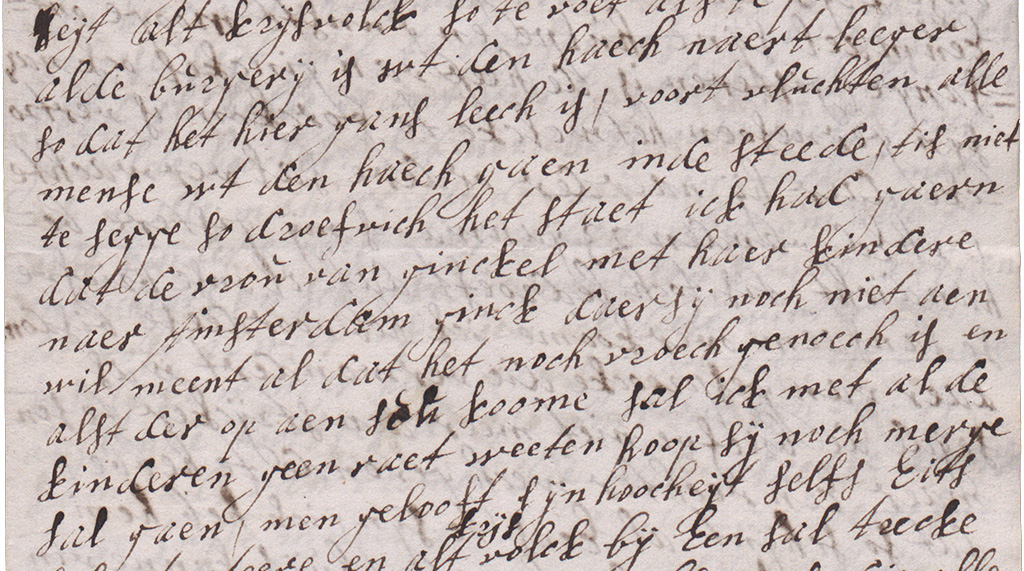 leyt alt krijsvolck so te voet als te
alde burgerij is wt den haech naert leeger
so dat het hier gans leech is / voort vluchten alle
mense wt den haech gaen inde steede, tis niet
te segge so droefvich het staet ick had gaern
dat de vrou van ginckel met haer kindere
naer Amsterdam ginck daer sij noch niet aen
wil meent al dat het noch vroech genoech is en
alst der op aen sou koome sal ick met al de
kinderen geen raet weeten hoop sij noch merge
sal gaen / men gelooft sijn hoocheyt selfs Eits
krijs
en alt volck bij Een sal trecke